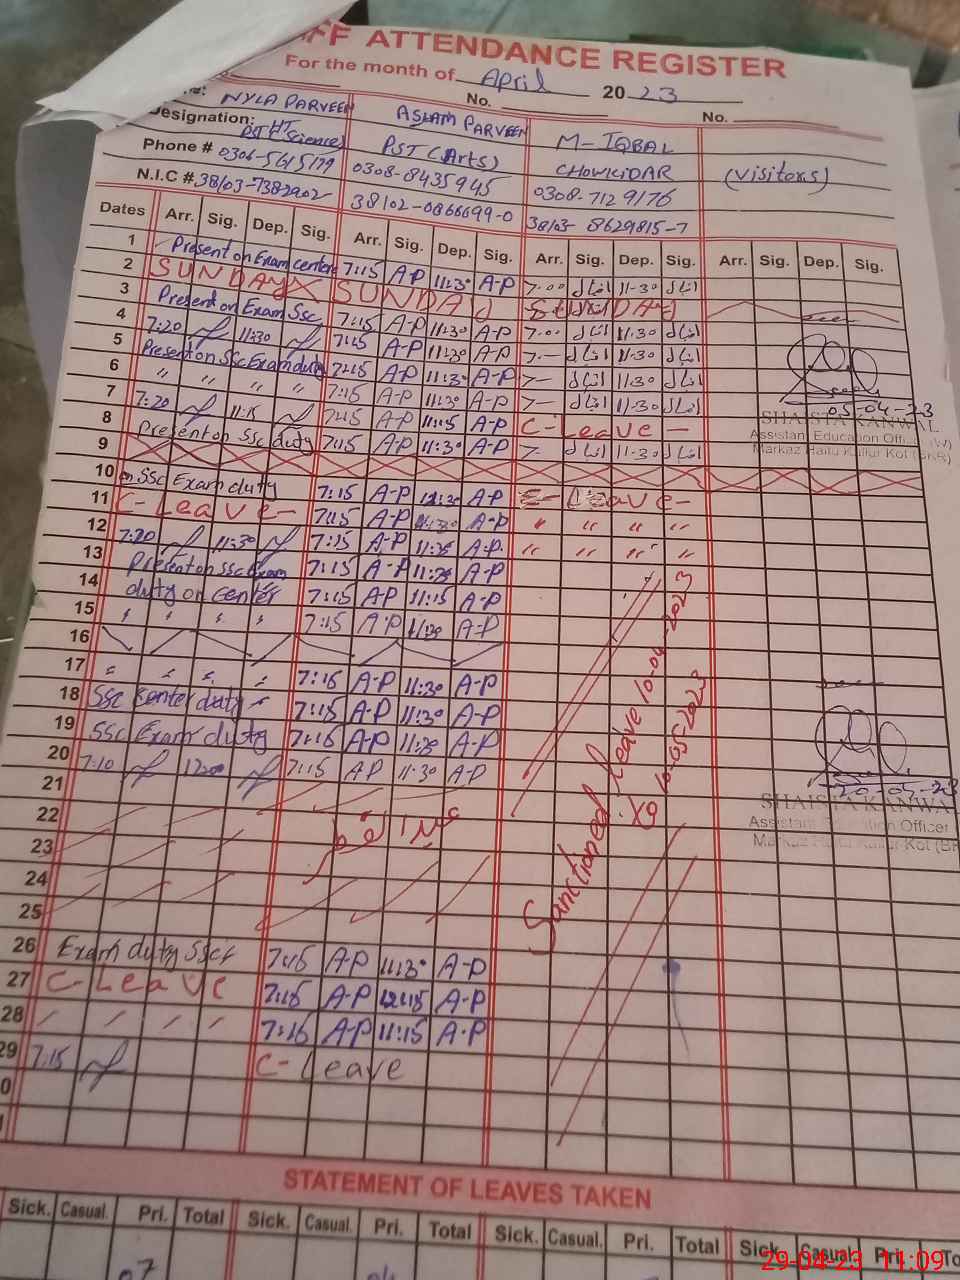 FF ATTENDANCE REGISTER
For the month of April 2023
No. No.
NYLA PARVEEN ASLAM PARVEEN M-IQBAL
Designation: PST (Arts) CHOWKIDAR (visitors)
Phone # 0306-5615179 0308-8435945 0308-7129176
N.I.C # 38103-7382902 38102-0866699-0 38103 8629815-7
Dates Arr. Sig. Dep. Sig. Arr. Sig. Dep. Sig. Arr. Sig. Dep. Sig. Arr. Sig. Dep. Sig.
1 Present on Exam center 7:15 A-P 11:30 A-P 7:00 11-30
2 SUNDAY SUNDAY SUNDAY
3 Present on Exam SSC 7:15 A-P 11:30 A-P 7:00 11-30
4 7:20 11:30 7:15 A-P 11:30 A-P 7- 11-30
5 Present on SSC Exam duty 7:15 A-P 11:30 A-P 7- 11-30
6 " " " " 7:15 A-P 11:30 A-P 7- 11-30
05-04-23
7 7:20 11:15 7:15 A-P 11:15 A-P C-Leave -
SHAISTA KANWAL
8 Present on SSC duty 7:15 A-P 11:30 A-P 7- 11-30
Assistant Education Officer (W)
Markaz Haitu Kallur Kot (BKR)
9
10 on SSC Exam duty 7:15 A-P 12:30 A-P C-Leave-
11 C-Leave- 7:15 A-P A-P " " " "
12 7:20 11:30 7:15 A-P 11:25 A-P. " " " "
13 Present on SSC Exam 7:15 A-P A-P
14 duty on center 7:15 AP 11:15 A-P
15 7:15 AP 11:30 A-P
16
17 7:15 A-P 11:30 A-P
18 SSC center duty 7:15 A-P 11:30 A-P
19 SSC Exam duty 7:15 A-P 11:30 A-P
20 7:10 1200 7:15 AP 11:30 A-P
Sanctioned leave 10-04-2023
to 10-05-2023
20-04-23
21
SHAISTA KANWAL
22
Assistant Education Officer
Markaz Haitu Kallur Kot (BK
23
24
25
26 Exam duty SSC 7:15 AP 11:30 A-P
27 C-Leave 7:15 A-P 12:15 A-P
28 7:15 AP 11:15 A-P
29 7:15 C-Leave
0
STATEMENT OF LEAVES TAKEN
Sick. Casual. Pri. Total Sick. Casual. Pri. Total Sick. Casual. Pri. Total Sick. Casual. Pri. To
07
29-04-23 11:09